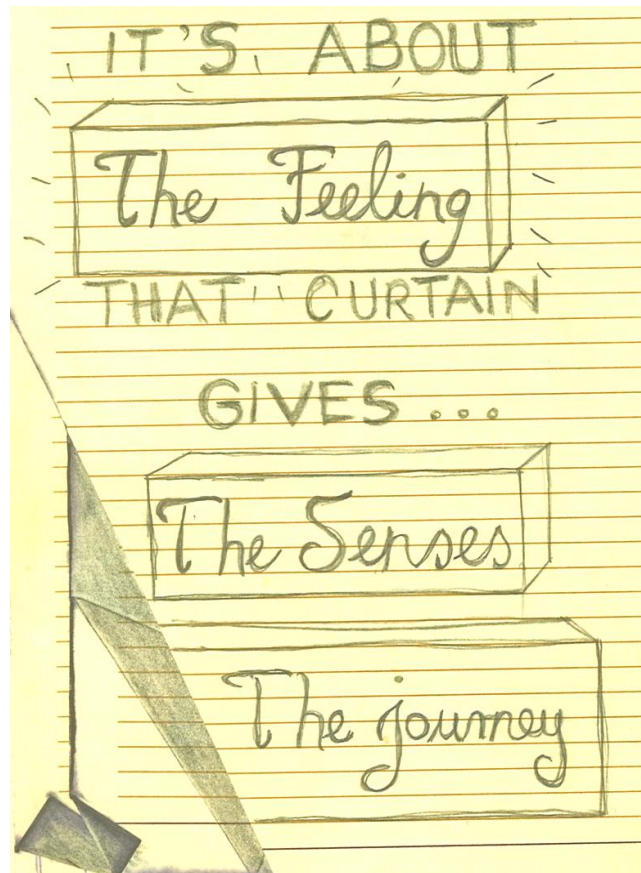 IT'S ABOUT
The Feeling
THAT CURTAIN
GIVES...
The Senses
The journey